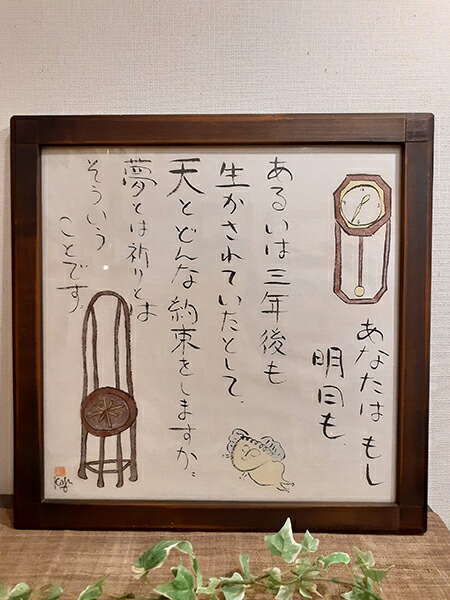 あなたはもし
明日も、
あるいは三年後も
生かされていたとして、
天とどんな約束をしますか。
夢とは祈りとは
そういう
ことです。